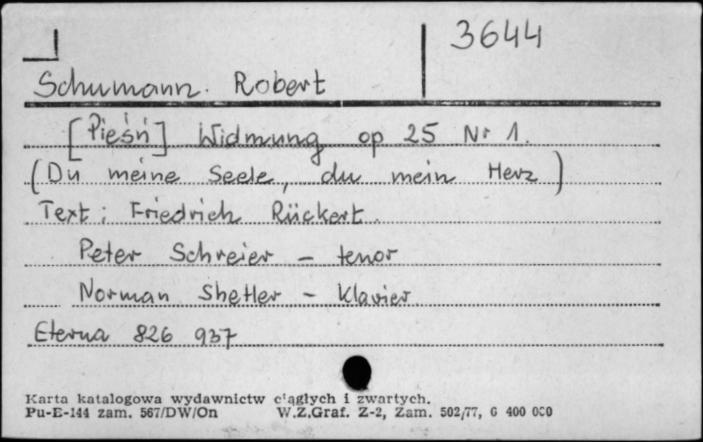 3644
Schumann. Robert
[Pieśń] Widmung op 25 Nr 1.
(Du meine Seele, du mein Herz)
Text: Friedrich Rückert.
Peter Schreier - tenor
Norman Shetler - Klavier
Eterna 826 937
Karta katalogowa wydawnictw ciągłych i zwartych.
Pu-E-144 zam. 567/DW/On W.Z.Graf. Z-2, Zam. 502/77, G 400 000